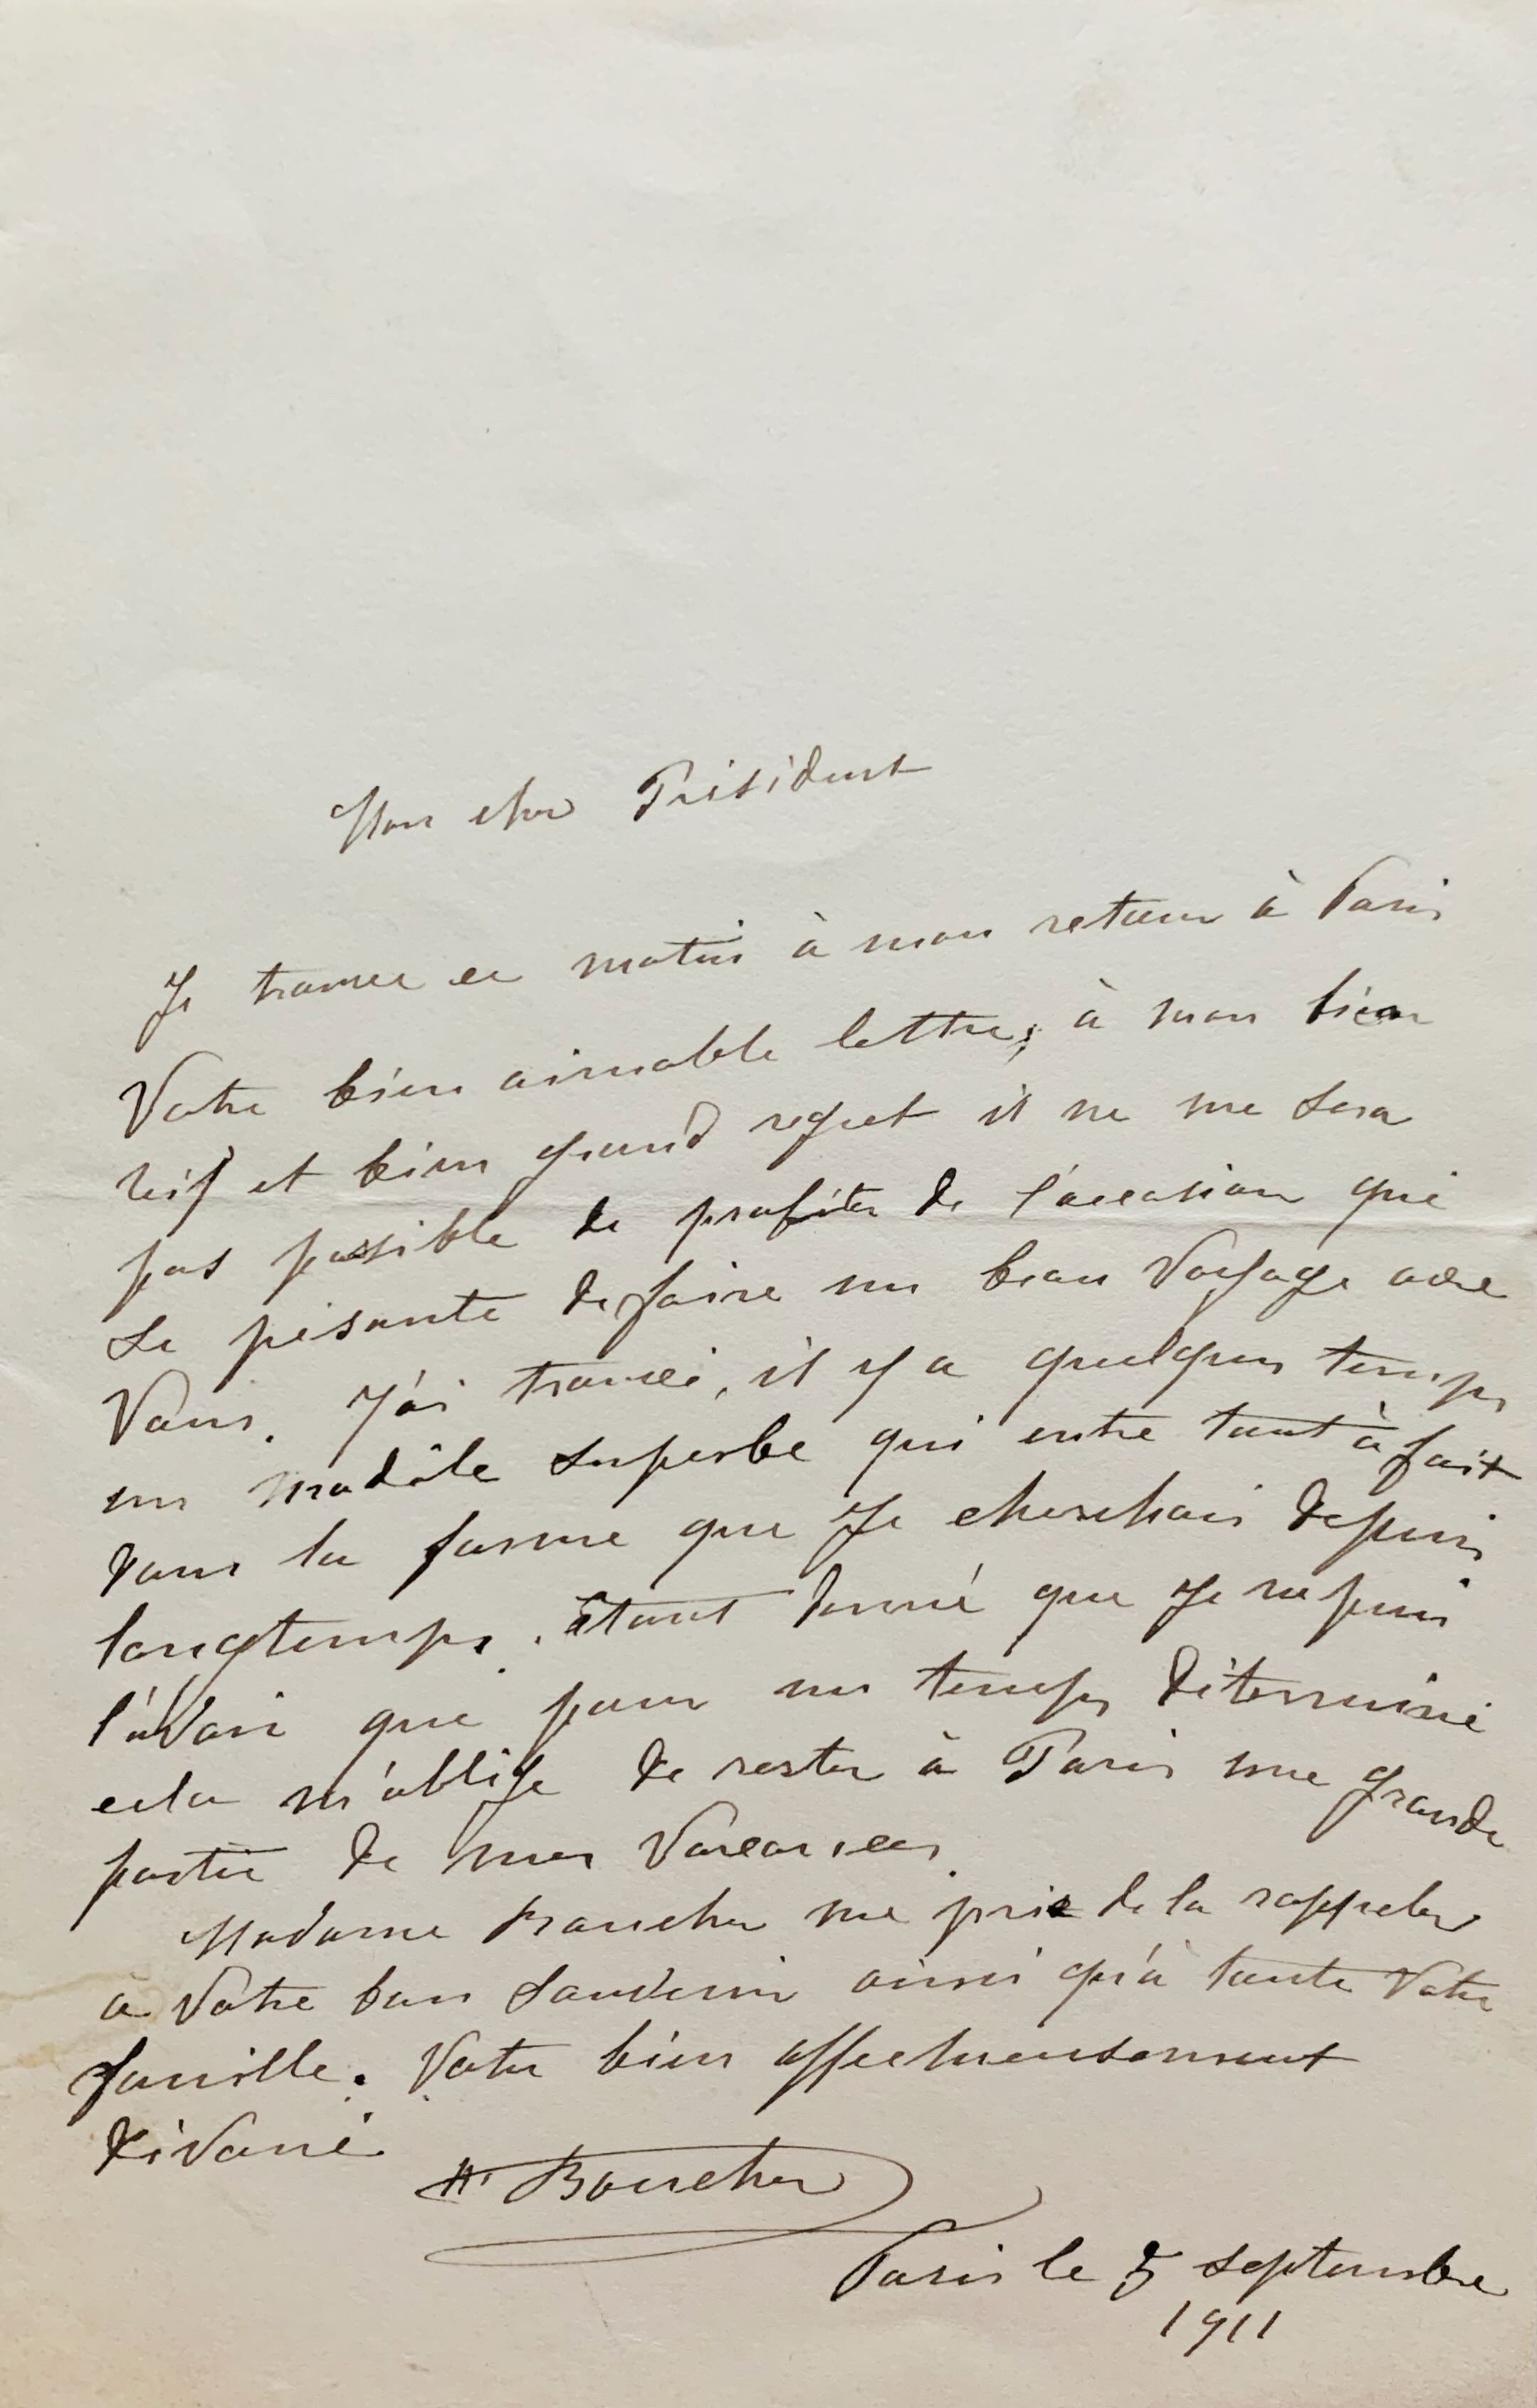 Mon cher Président
Je trouve ce matin à mon retour à Paris
Votre bien aimable lettre, à mon bien
vif et bien grand regret il ne me sera
pas possible de profiter de l'occasion qui
se présente de faire un beau Voyage avec
Vous. J'ai trouvé, il y a quelques temps
un modèle superbe qui entre tout à fait
dans la forme que Je cherchais depuis
longtemps. étant donné que Je ne puis
l'avoir que pour un temps déterminé
cela m'oblige de rester à Paris une grande
partie de mes Vacances.
Madame Boucher me prie de la rappeler
à Votre bon souvenir ainsi qu'à toute Votre
famille. Votre bien affectueusement
dévoué
Boucher
Paris le 5 septembre
1911